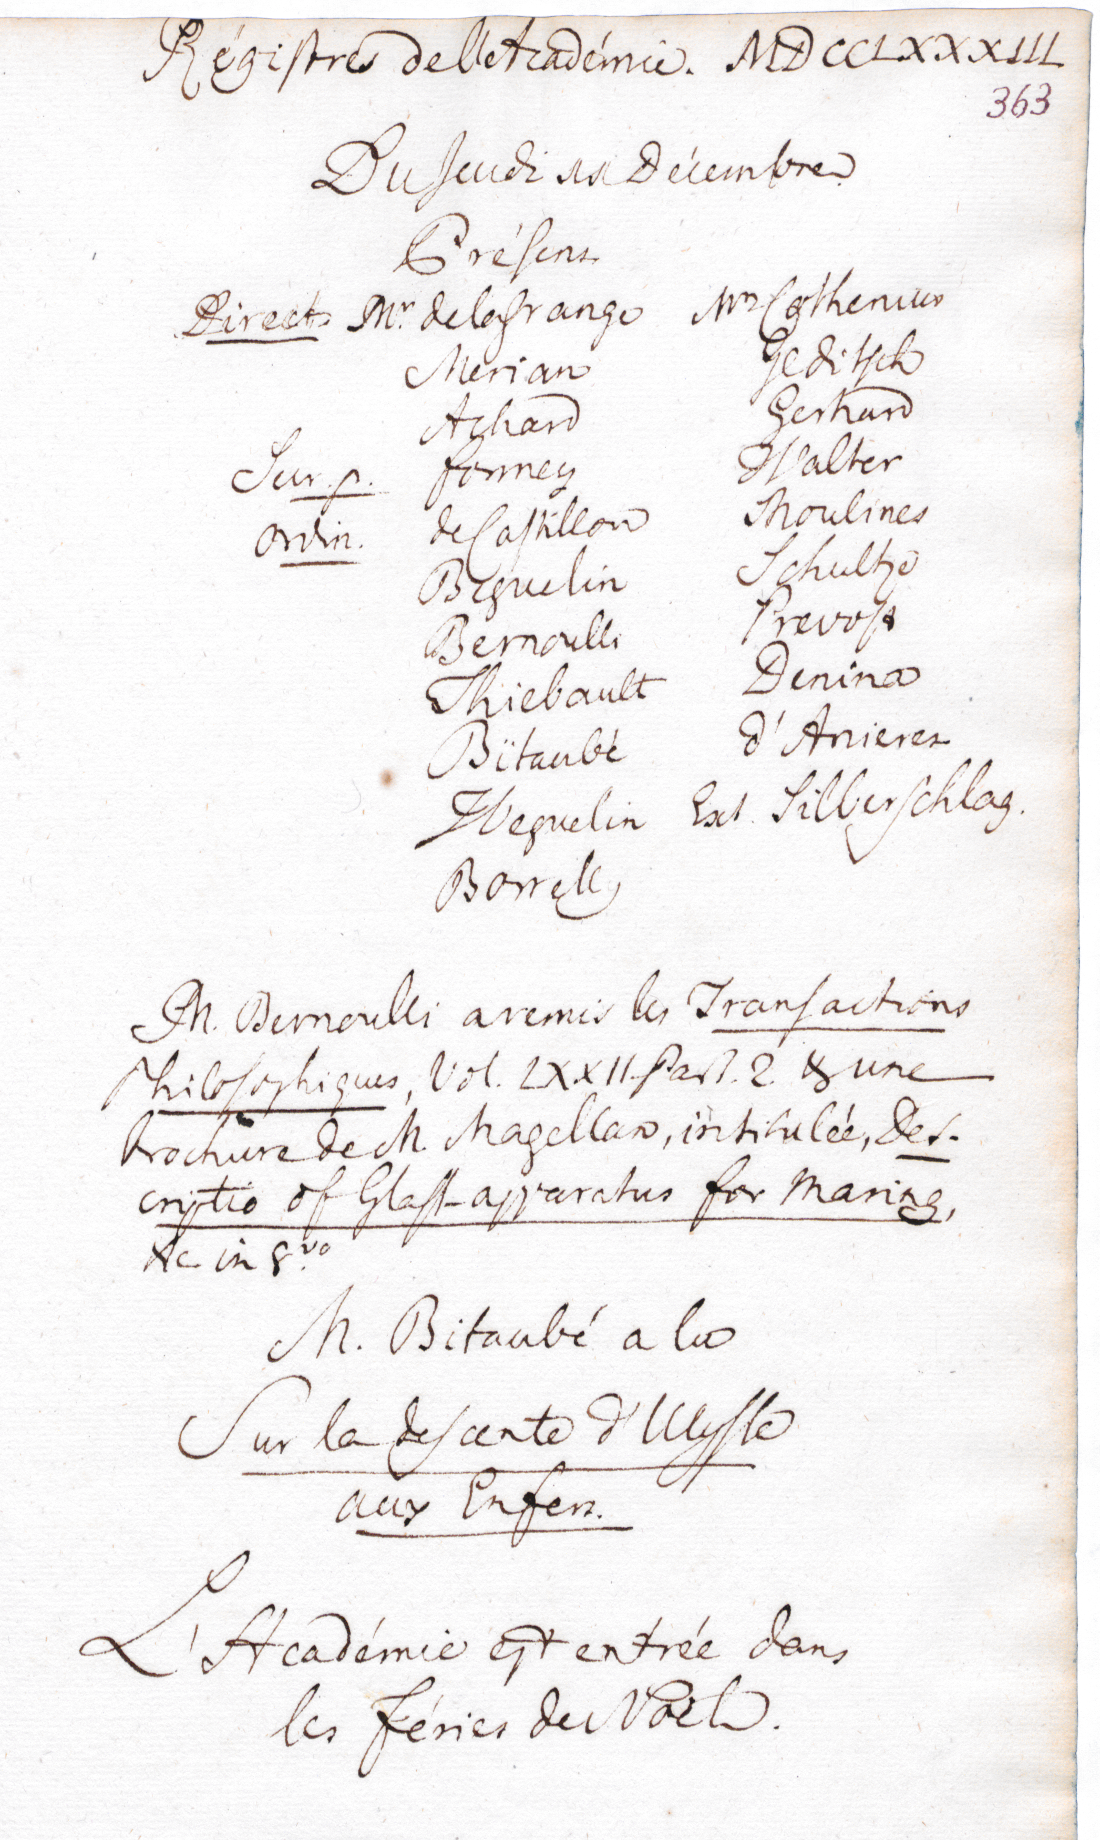 Régistres de l'Académie. MDCCLXXXIII
363
Du Jeudi 11 Décembre
Présens
Direct. Mr. de la Grange Mrs Cothenius
Merian Gleditsch
Achard Gerhard
Sur. p. Formey Walter
ordin. de Castillon Moulines
Beguelin Schultze
Bernoulli Prevost
Thiebault Denina
Bitaubé d'Anieres
Weguelin Ext. Silberschlag.
Borrelly
M. Bernoulli a remis les Transactions
Philosophiques, Vol. LXXII. Part. 2. & une
brochure de M. Magellan, intitulée, Des-
criptio of Glass-apparatus for making,
&c in 8.vo
M. Bitaubé a lu
Sur la descente d'Ulysse
aux Enfers.
L'Académie est entrée dans
les féries de Noël.